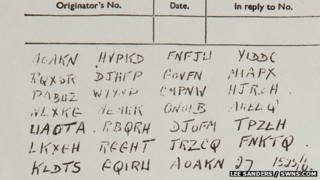 Originator's No. Date. In reply to No.
AOAKN HVPKD FNFJW YIDDC
RQXSR DJHFP GOVFN MIAPX
PABUZ WYYNP CMPNW HJRZH
NLXKG MEMKK ONOIB AKEEQ
UAOTA RBQRH DJOFM TPZEH
LKXGH RGGHT JRZCQ FNKTQ
KLDTS GQIRU AOAKN 27 1525/6
LEE SANDERS / SWNS.COM